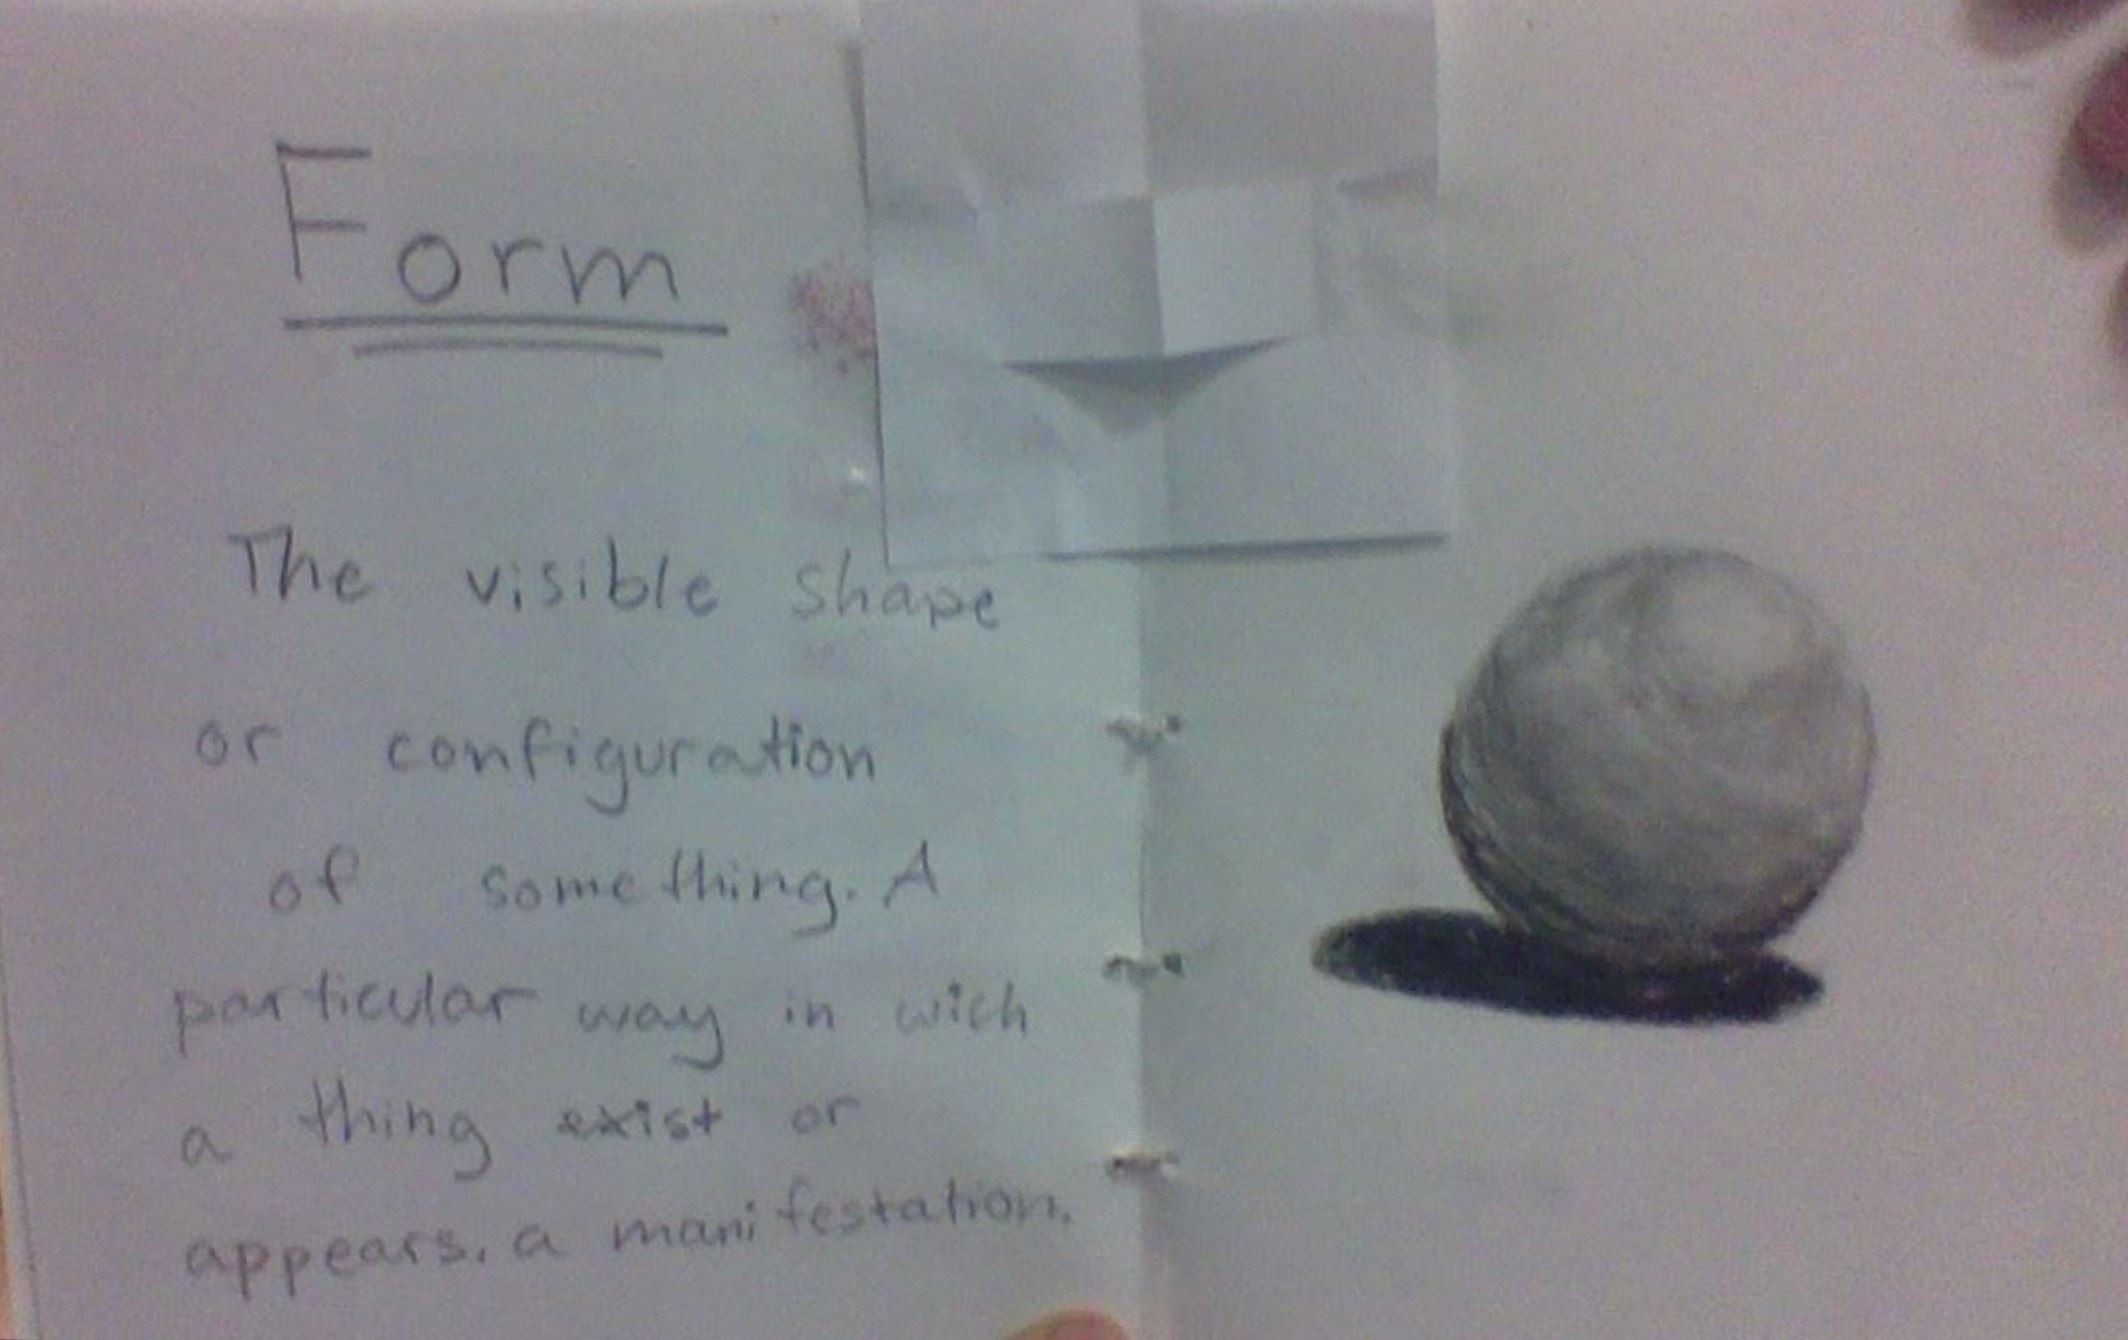 Form
The visible shape
or configuration
of something. A
particular way in wich
a thing exist or
appears. a manifestation.